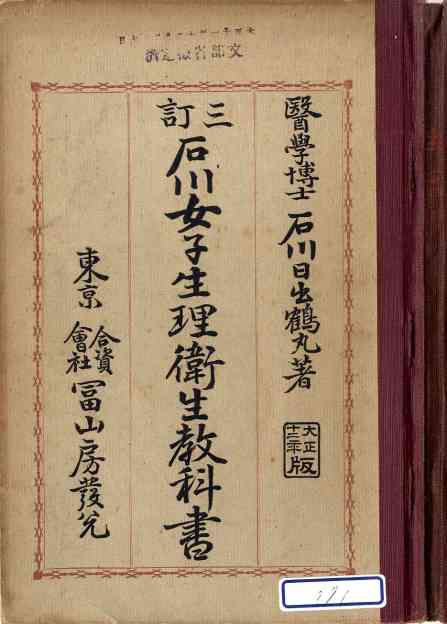 文部省検定済
醫學博士 石川日出鶴丸著
大正十二年版
三訂
石川女子生理衛生教科書
東京 合資會社 冨山房發兌